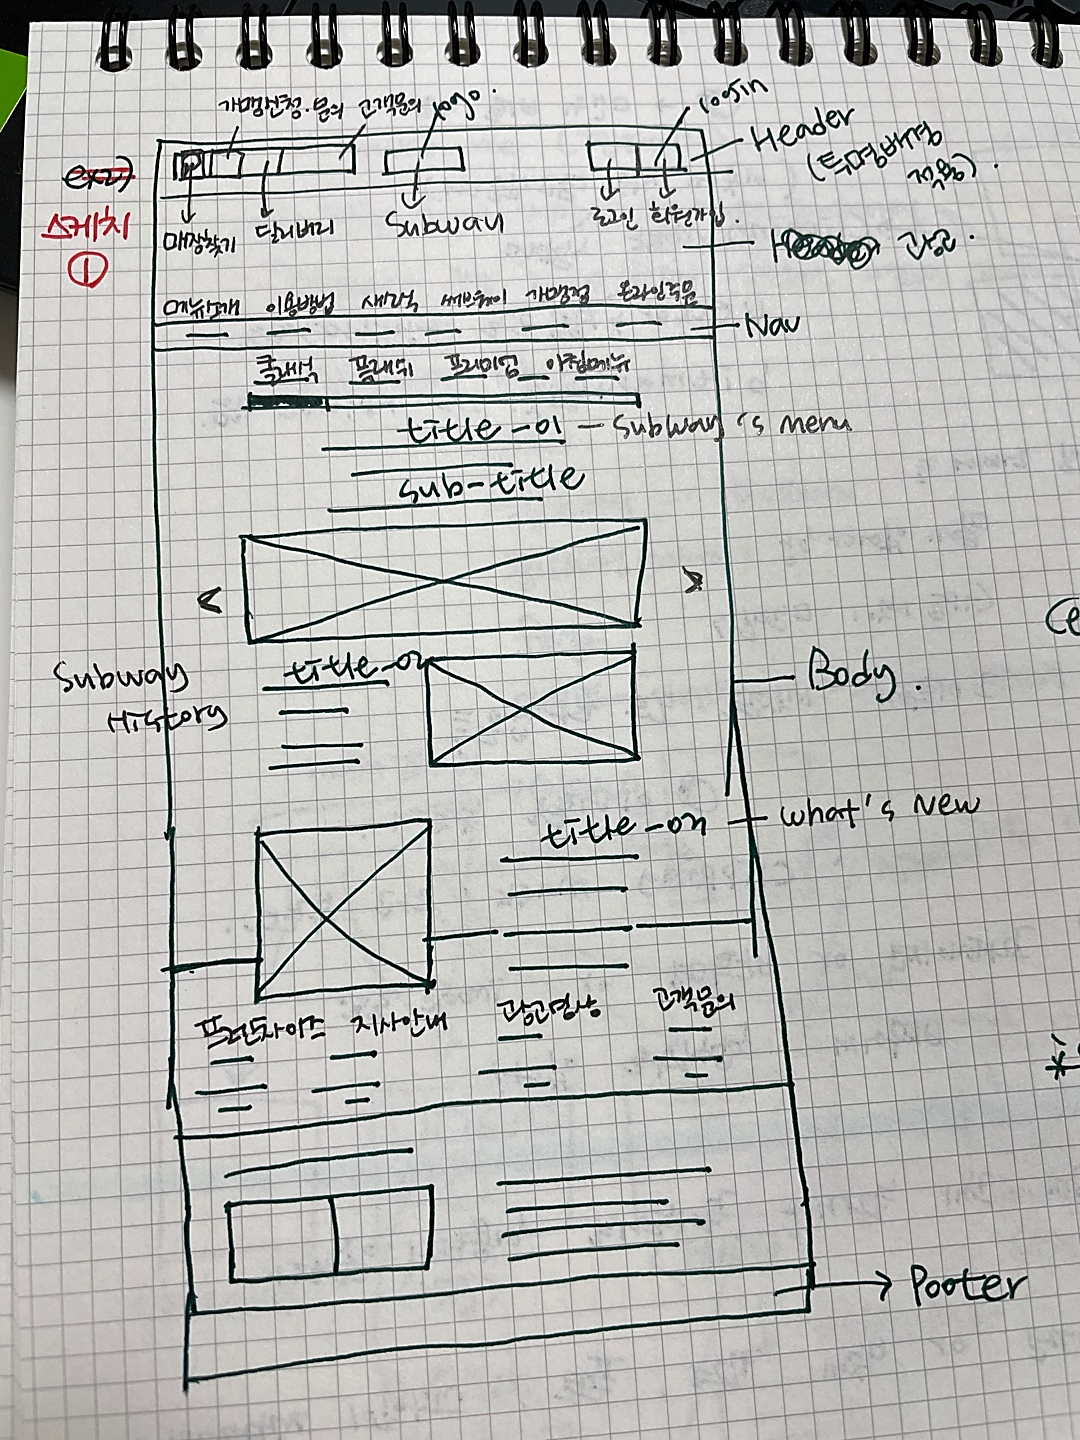 가맹신청·문의 고객문의 logo. login
ex2)
스케치
①
Header
(투명배경
적용).
매장찾기 딜리버리 Subway 로그인 회원가입.
광고.
메뉴소개 이용방법 새소식 써브웨이 가맹점 온라인주문
Nav
클래식 프레쉬 프리미엄 아침메뉴
title-01 - Subway's menu
sub-title
< >
Subway
History
title-02
Body.
title-03
what's New
프랜차이즈 지사안내 광고영상 고객문의
Footer